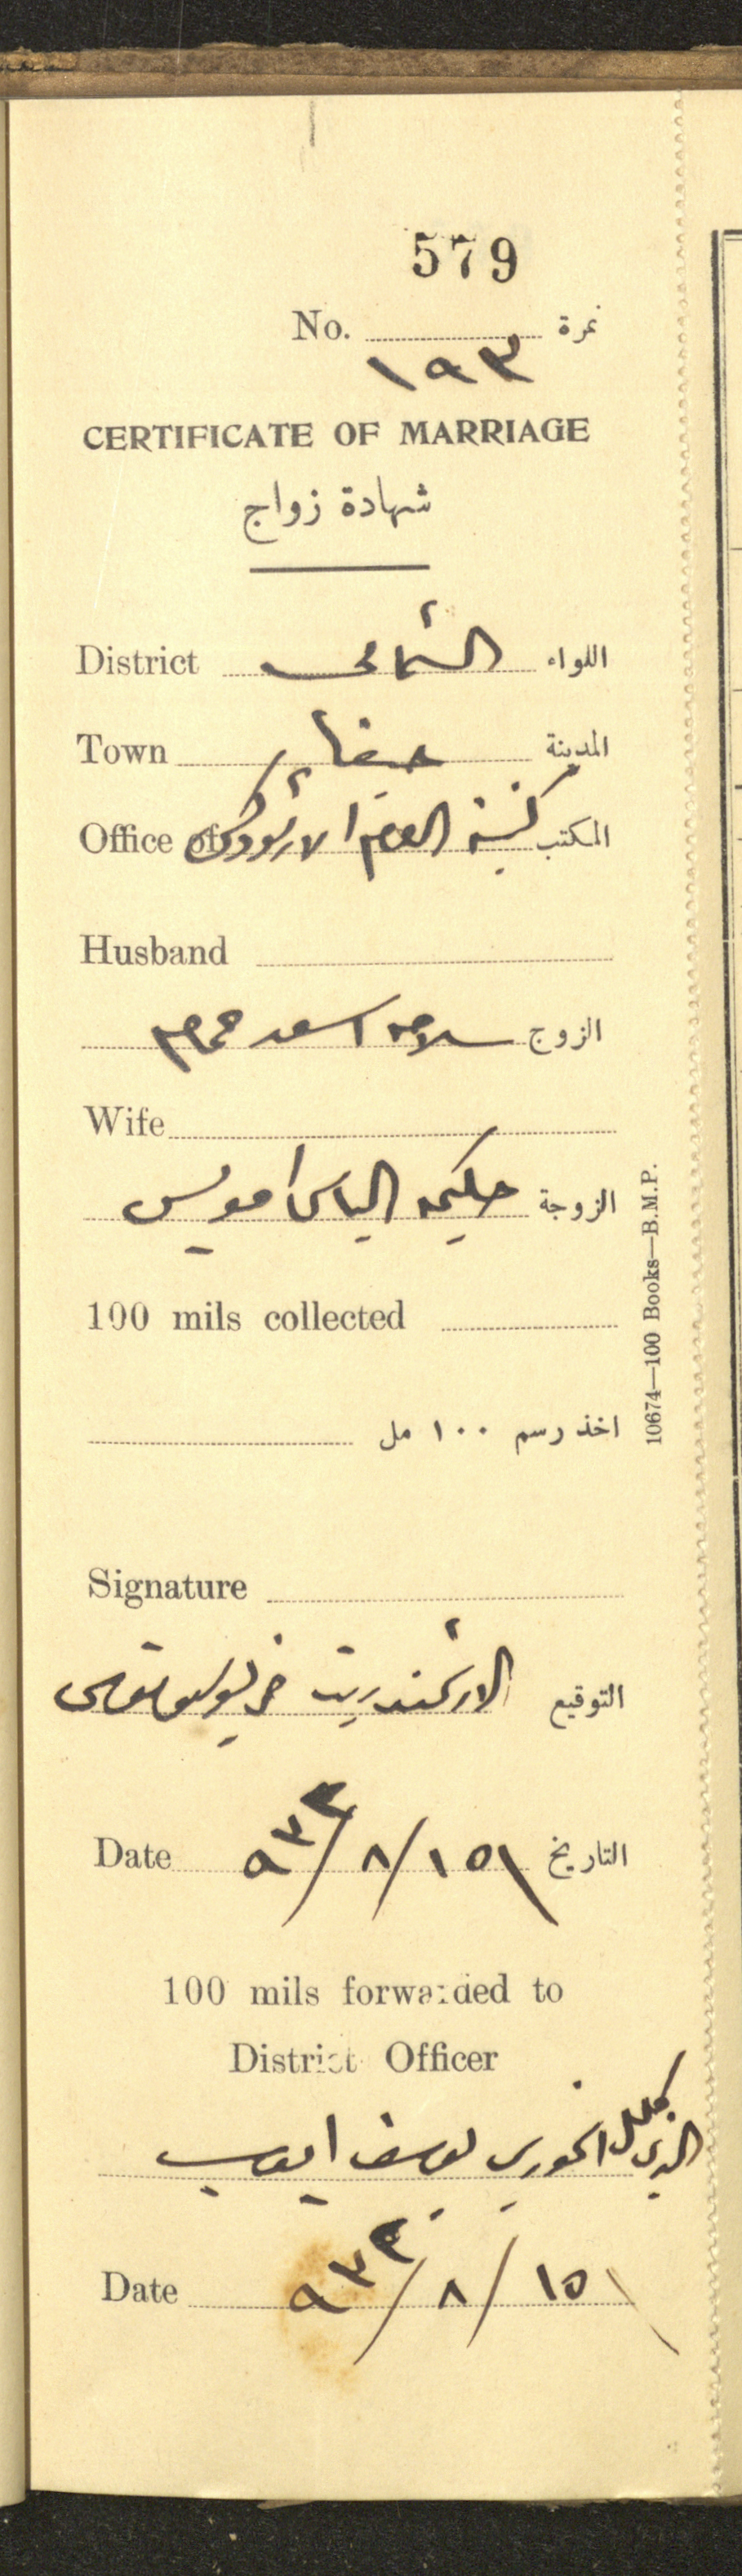 579
No. نمرة
١٩٣
CERTIFICATE OF MARRIAGE
شهادة زواج
District الشمالي اللواء
Town حيفا المدينة
Office of كنيسة الروم الارثوذكس المكتب
Husband
الزوج سلامه اسعد
Wife
الزوجة حكيمه الياس
100 mils collected
اخذ رسم ١٠٠ مل
Signature
التوقيع الارشمندريت
Date ١٥/٨/٩٣٣ التاريخ
100 mils forwarded to
District Officer
الذي كلل الخوري يوسف ايوب
Date ١٥/٨/٩٣٣
10674—100 Books—B.M.P.